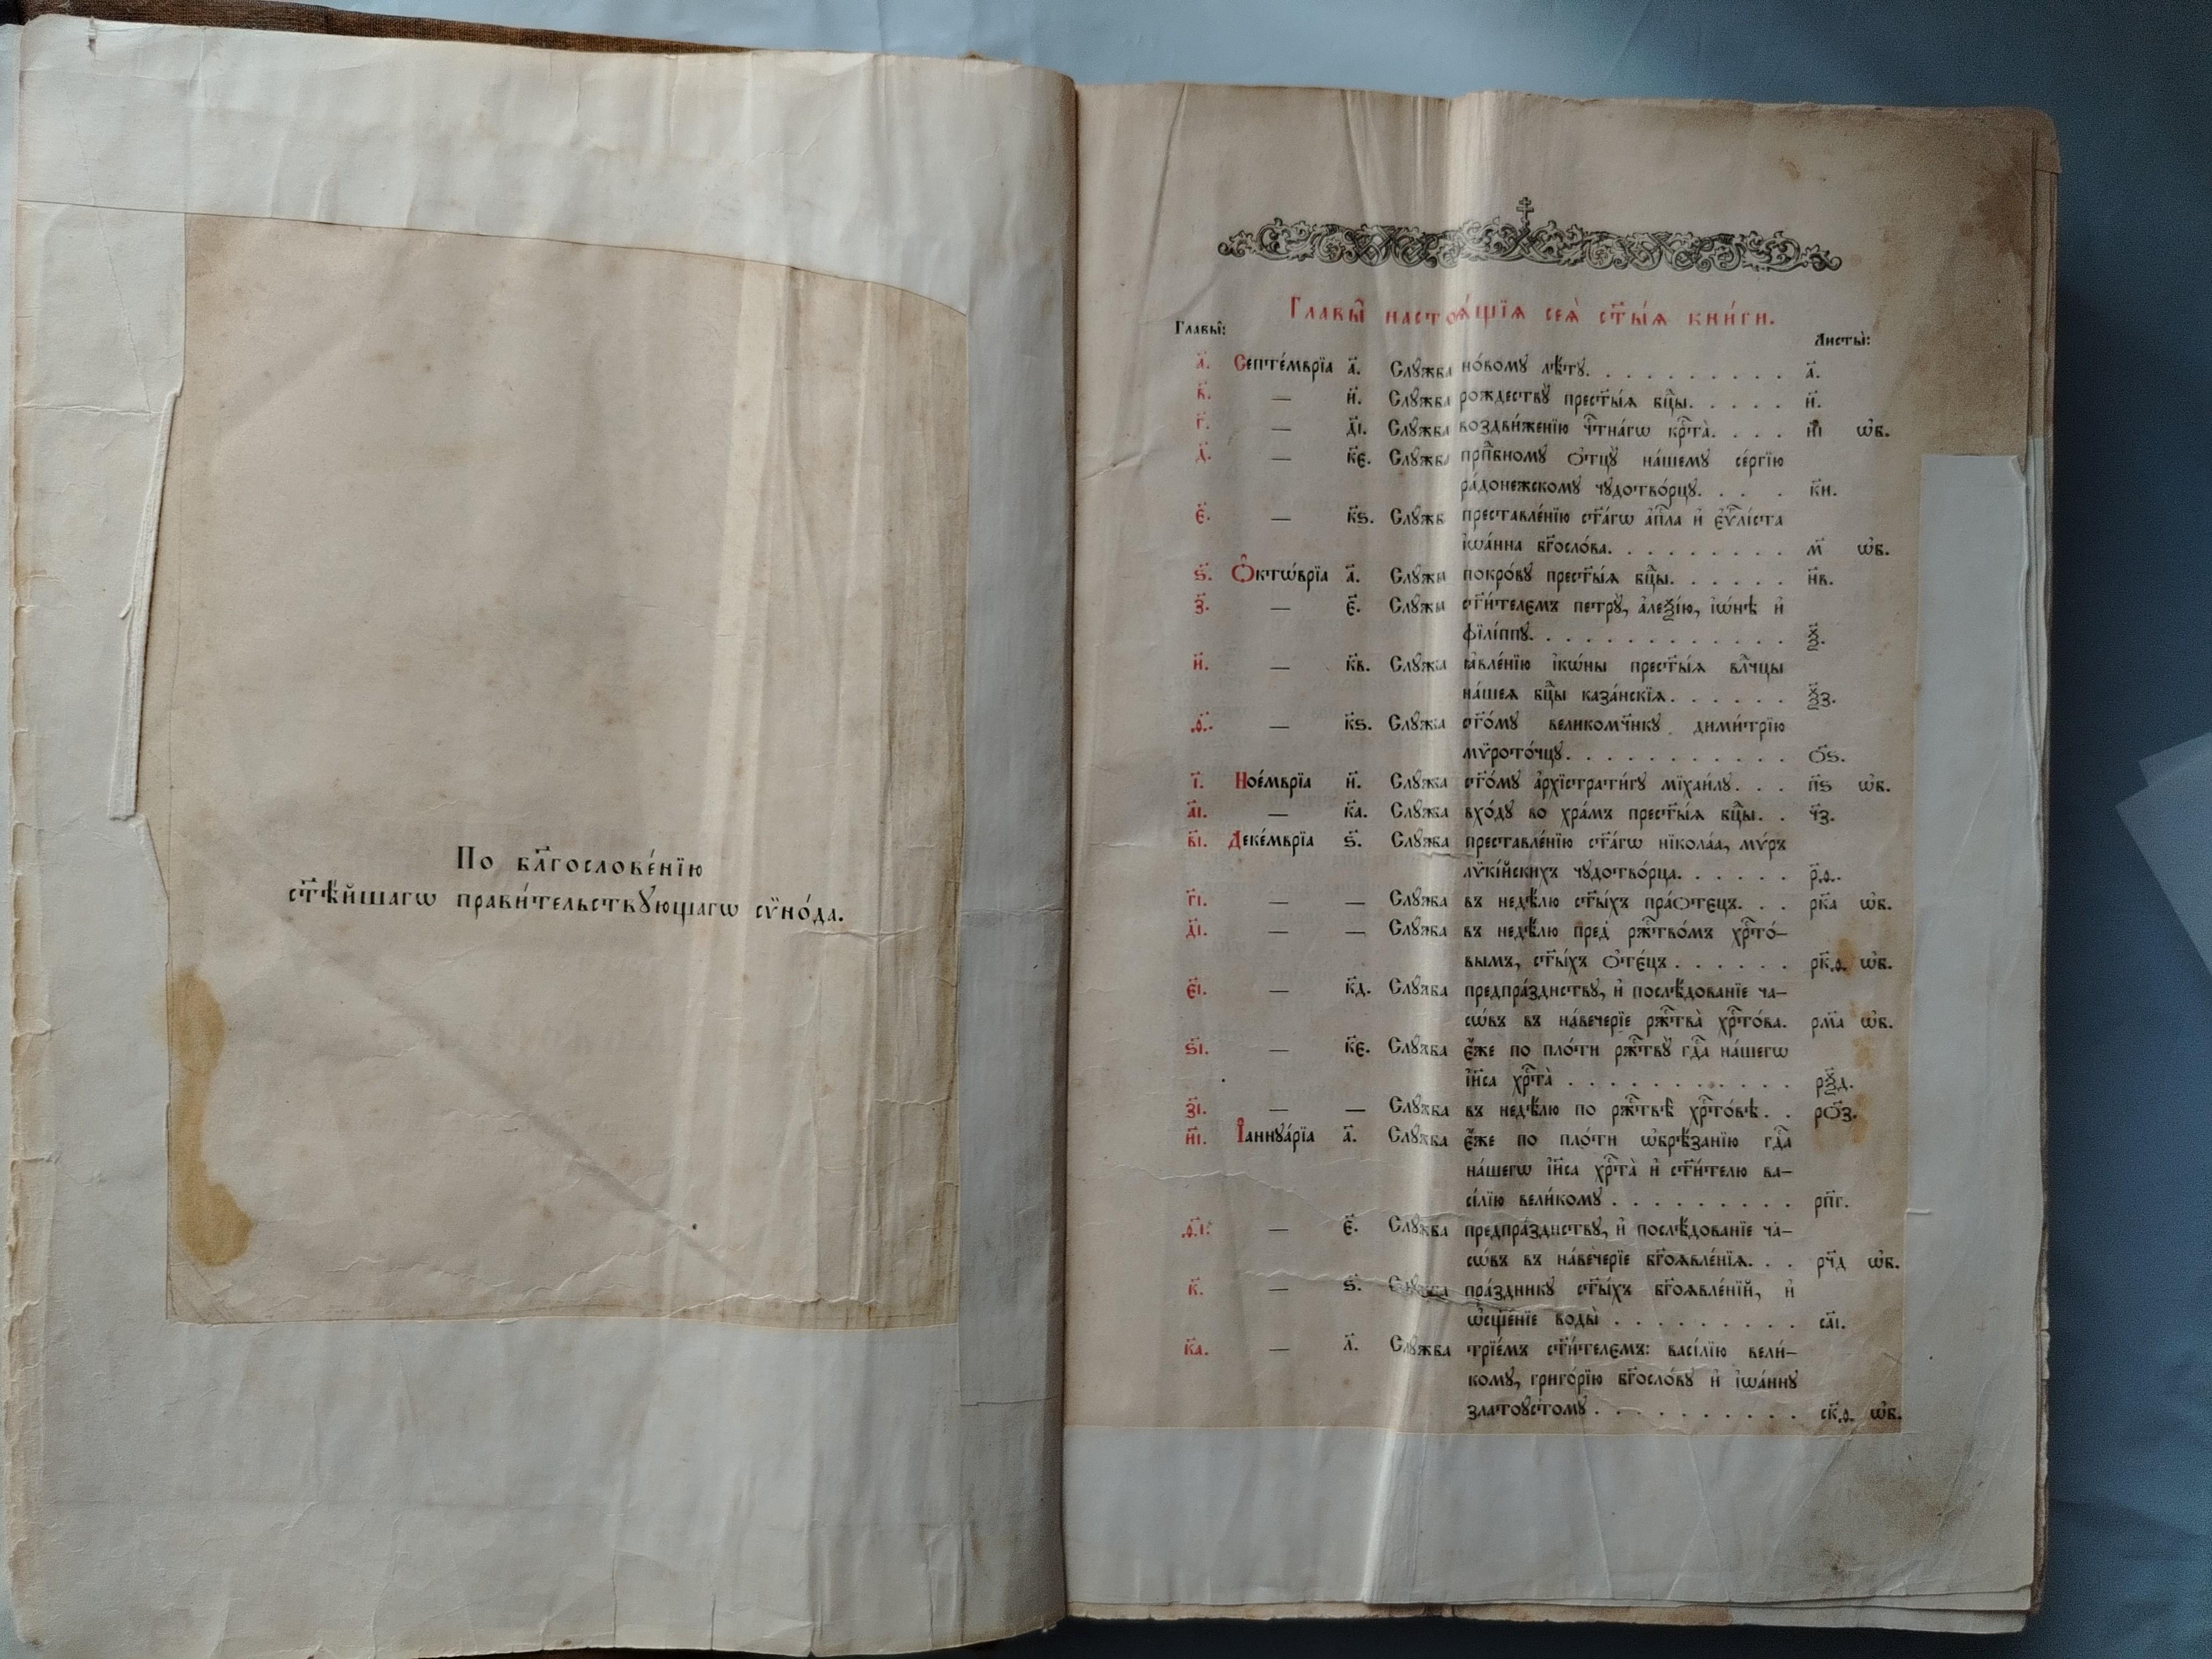 По бл҃гослове́нїю
ст҃ѣ́йшагѡ прави́тельствꙋющагѡ сѵно́да.
Главы̑ настоѧ́щїѧ сеѧ̀ ст҃ы́ѧ кни́ги.
Главы̑:
Листы̀:
а҃. Септе́мврїа а҃. Слꙋжба но́вомꙋ лѣ́тꙋ. . . . . . . . . . а҃.
в҃. — и҃. Слꙋжба рождествꙋ̀ прест҃ы́ѧ бц҃ы. . . . . и҃.
г҃. — д҃і. Слꙋжба воздви́женїю чⷭ҇тна́гѡ крⷭ҇та̀. . . . и҃і ѡ҆б.
д҃. — к҃є. Слꙋжба прпⷣбномꙋ ѻ҆тцꙋ̀ на́шемꙋ се́ргїю
ра́донежскомꙋ чꙋдотво́рцꙋ. . . . к҃и.
є҃. — к҃ѕ. Слꙋжб преставле́нїю ст҃а́гѡ а҆пⷭ҇ла и҆ є҆ѵⷢ҇лі́ста
і҆ѡа́нна бг҃осло́ва. . . . . . . . . м҃ ѡ҆б.
ѕ҃. Ѻ҆ктѡ́врїа а҃. Слꙋжба покро́вꙋ прест҃ы́ѧ бц҃ы. . . . . . н҃в.
з҃. — є҃. Слꙋжба ст҃и́телємъ петрꙋ̀, а҆леѯі́ю, і҆ѡ́нѣ и҆
фїлі́ппꙋ. . . . . . . . . . . . . ѯ҃.
и҃. — к҃в. Слꙋжба ꙗ҆вле́нїю і҆кѡ́ны прест҃ы́ѧ влⷣчцы
на́шеѧ бц҃ы каза́нскїѧ. . . . . . . ѯ҃з.
ѳ҃. — к҃ѕ. Слꙋжба ст҃о́мꙋ великомч҃никꙋ дими́трїю
мѵрото́чцꙋ. . . . . . . . . . . . ѻ҃ѕ.
і҃. Ное́мврїа и҃. Слꙋжба ст҃о́мꙋ а҆рхїстрати́гꙋ мїхаи́лꙋ. . . п҃ѕ ѡ҆б.
а҃і. — к҃а. Слꙋжба вхо́дꙋ во хра́мъ прест҃ы́ѧ бц҃ы. . ч҃з.
в҃і. Деке́мврїа ѕ҃. Слꙋжба преставле́нїю ст҃а́гѡ нїкола́а, мѵ́ръ
лѵкі́йскихъ чꙋдотво́рца. . . . . . р҃ѳ.
г҃і. — — Слꙋжба въ недѣ́лю ст҃ы́хъ пра́ѻтєцъ. . . рк҃а ѡ҆б.
д҃і. — — Слꙋжба въ недѣ́лю пред̾ ржⷭ҇тво́мъ хрⷭ҇то́-
вымъ, ст҃ы́хъ ѻ҆тє́цъ . . . . . . рк҃ѳ ѡ҆б.
є҃і. — к҃д. Слꙋжба предпра́зднствꙋ, и҆ послѣ́дованїе ча-
сѡ́въ въ наве́черїе ржⷭ҇тва̀ хрⷭ҇то́ва. рм҃а ѡ҆б.
ѕ҃і. — к҃є. Слꙋжба є҆́же по пло́ти ржⷭ҇твꙋ̀ гдⷭ҇а на́шегѡ
і҆и҃са хрⷭ҇та̀ . . . . . . . . . . . рѯ҃д.
з҃і. — — Слꙋжба въ недѣ́лю по ржⷭ҇твѣ̀ хрⷭ҇то́вѣ. . рѻ҃з.
и҃і. І҆аннꙋа́рїа а҃. Слꙋжба є҆́же по пло́ти ѡ҆брѣ́занїю гдⷭ҇а
на́шегѡ і҆и҃са хрⷭ҇та̀ и҆ ст҃и́телю ва-
сі́лїю вели́комꙋ . . . . . . . . . рп҃г.
ѳ҃і. — є҃. Слꙋжба предпра́зднствꙋ, и҆ послѣ́дованїе ча-
сѡ́въ въ наве́черїе бг҃оѧвле́нїѧ. . . рч҃д ѡ҆б.
к҃. — ѕ҃. Слꙋжба пра́здникꙋ ст҃ы́хъ бг҃оѧвле́нїй, и҆
ѡ҆сщ҃е́нїе воды̀ . . . . . . . . . са҃і.
к҃а. — л҃. Слꙋжба трїе́мъ ст҃и́телємъ: васі́лїю вели́-
комꙋ, григо́рїю бг҃осло́вꙋ и҆ і҆ѡа́ннꙋ
златоꙋ́стомꙋ . . . . . . . . . . ск҃ѳ ѡ҆б.